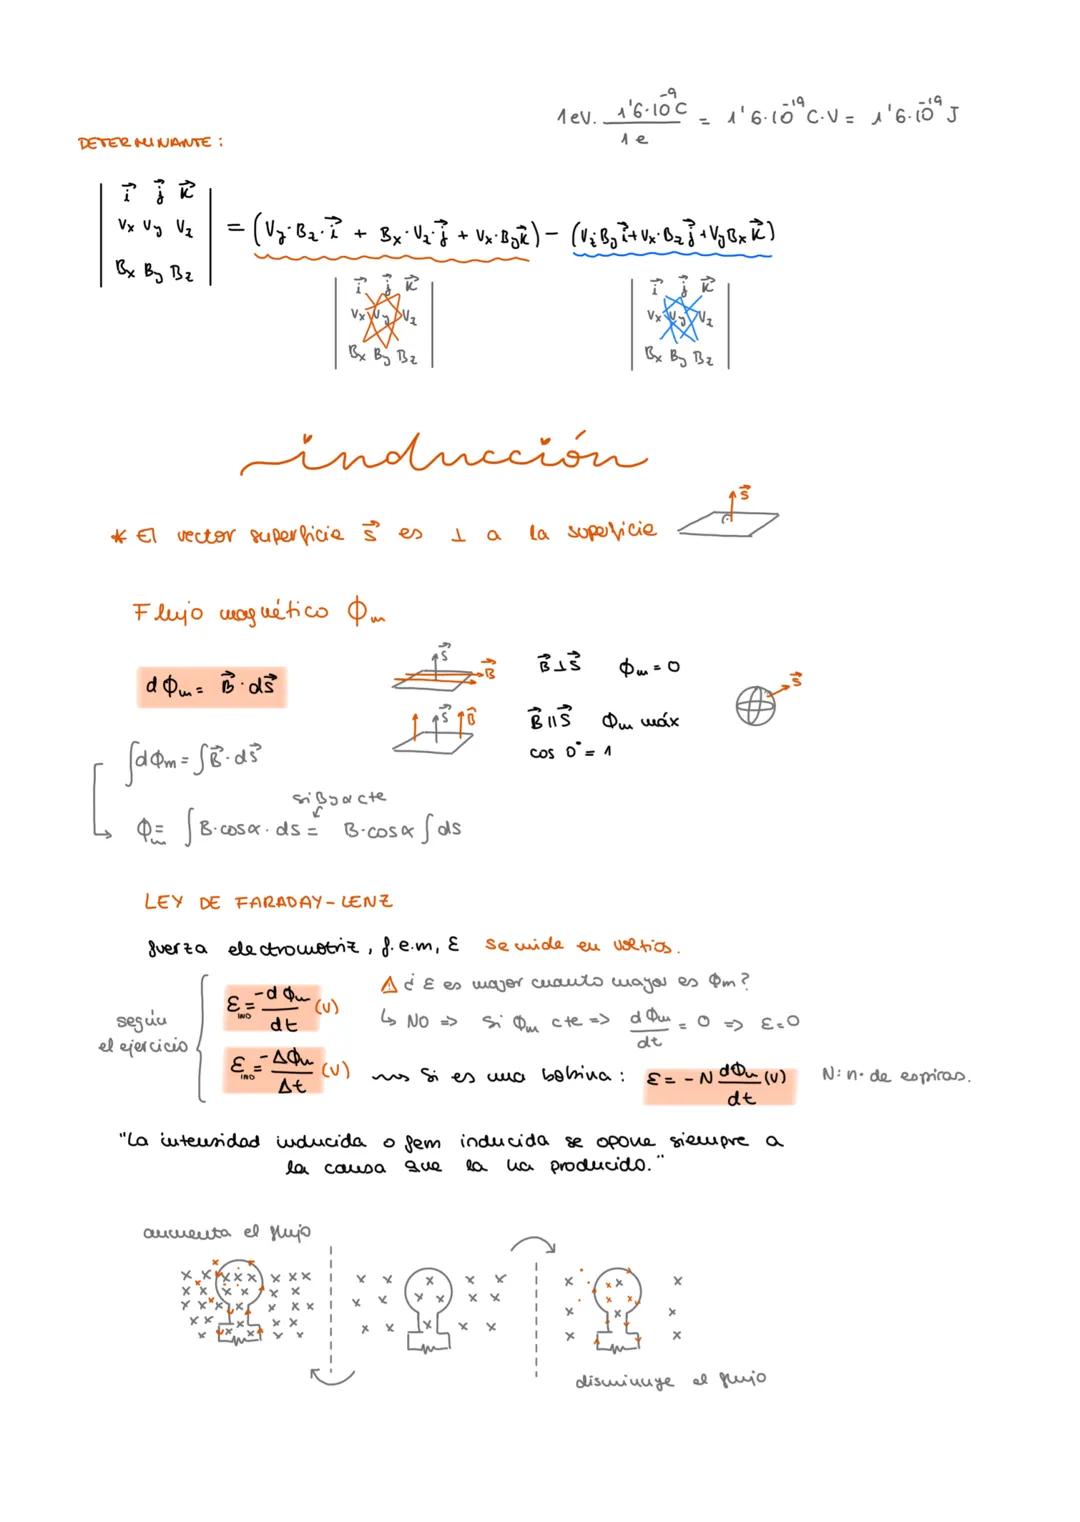 1 eV · 1'6·10⁻⁹ C / 1 e = 1'6·10⁻¹⁹ C·V = 1'6·10⁻¹⁹ J
DETERMINANTE:
| i⃗ j⃗ k⃗ |
| Vx Vy Vz | = (Vy·Bz·i⃗ + Bx·Vz·j⃗ + Vx·By k⃗) − (Vz·By i⃗ + Vx·Bz j⃗ + Vy Bx k⃗)
| Bx By Bz |
i⃗ j⃗ k⃗ i⃗ j⃗ k⃗
Vx Vy Vz Vx Vy Vz
Bx By Bz Bx By Bz
inducción
* El vector superficie S⃗ es ⊥ a la superficie S⃗
Flujo magnético Φm
dΦm = B⃗ · dS⃗ S⃗ B⃗ B⃗ ⊥ S⃗ Φm = 0 S⃗
S⃗ B⃗ B⃗ ∥ S⃗ Φm máx
cos 0° = 1
∫dΦm = ∫B⃗ · dS⃗
si B y α cte
Φm = ∫B·cosα·ds = B·cosα ∫ds
LEY DE FARADAY-LENZ
fuerza electromotriz, f.e.m, Ɛ se mide en voltios.
según el ejercicio
Ɛ IND = -dΦm / dt (V) ⚠ ¿ Ɛ es mayor cuanto mayor es Φm?
↳ NO => Si Φm cte => dΦm / dt = 0 => Ɛ = 0
Ɛ IND = -ΔΦm / Δt (V) Si es una bobina: Ɛ = -N dΦm / dt (V) N: nº de espiras.
"La intensidad inducida o fem inducida se opone siempre a
la causa que la ha producido."
aumenta el flujo
disminuye el flujo